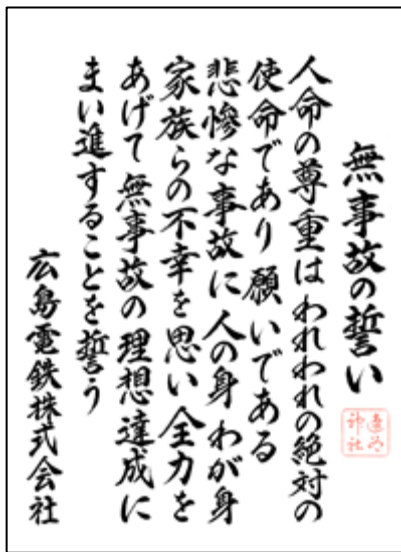 無事故の誓い
人命の尊重はわれわれの絶対の
使命であり願いである
悲惨な事故に人の身わが身
家族らの不幸を思い全力を
あげて無事故の理想達成に
まい進することを誓う
広島電鉄株式会社